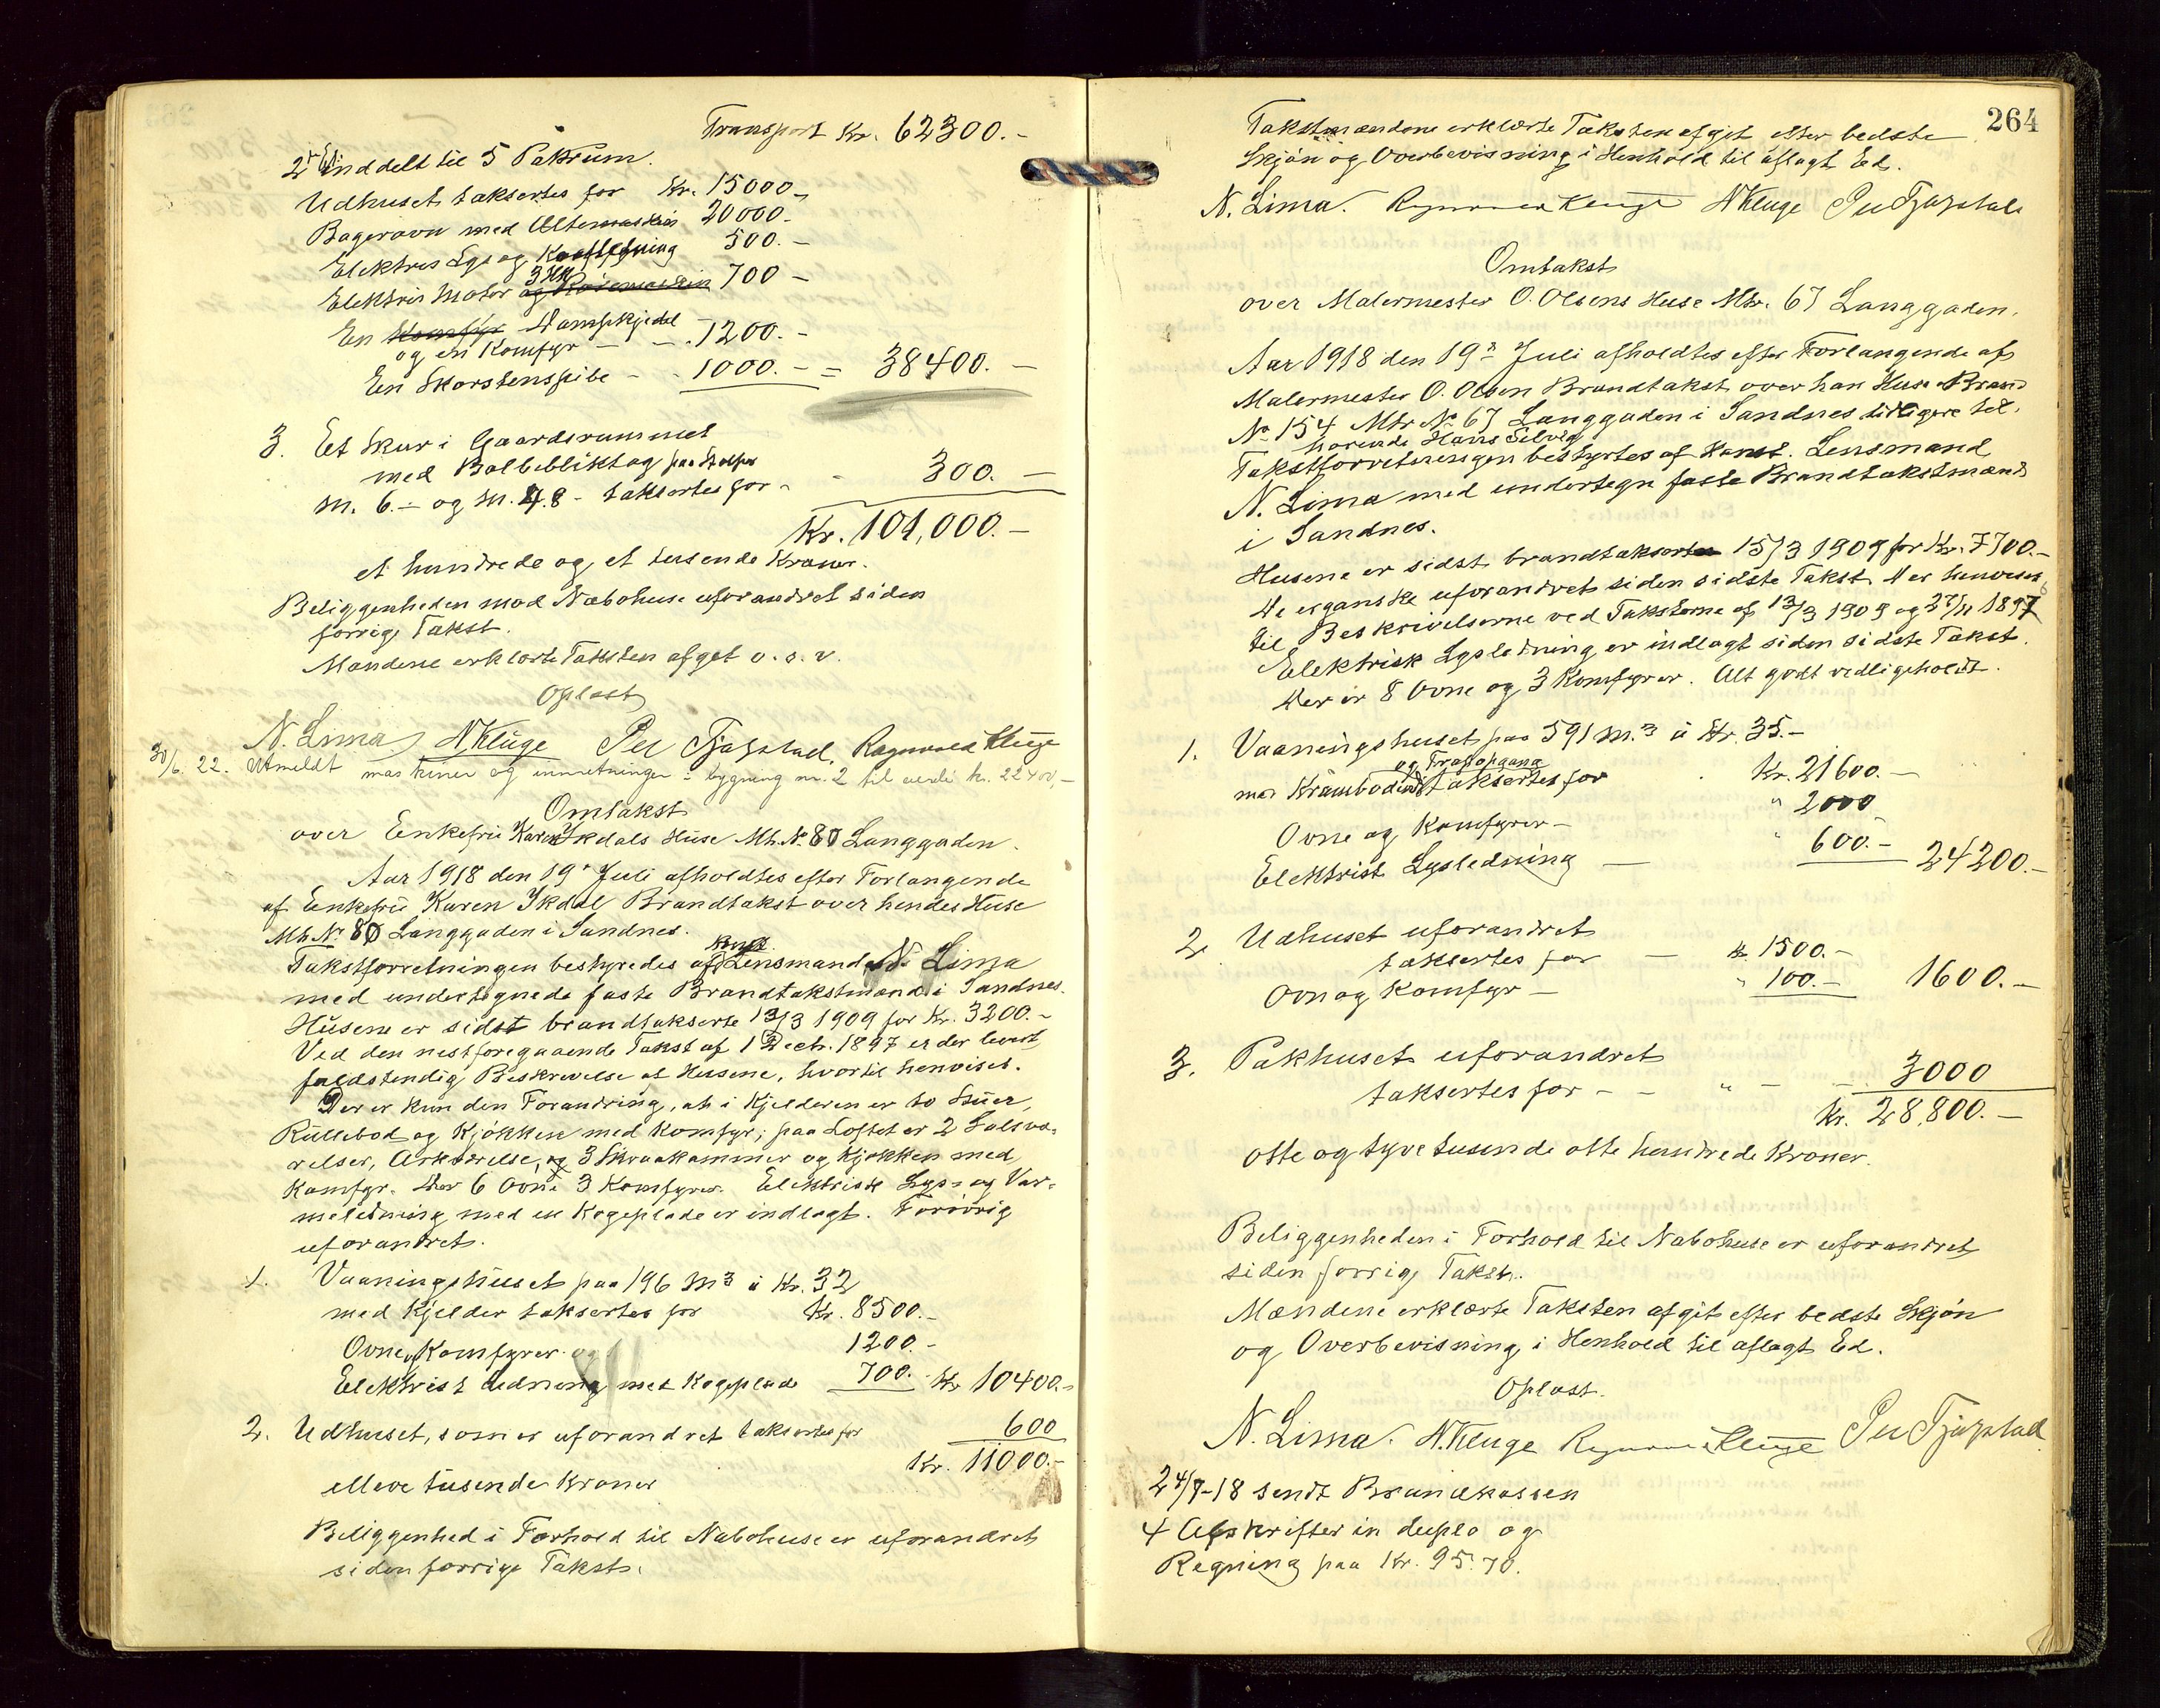 Transport Kr. 62300.-
2 Et. inddelt til 5 Pakrum.
Udhuset taksertes for Kr. 15000.-
Bagerovn med Æltemaskin 20000.-
Elektrisk Lys og Kraftledning 500.-
Elektrisk Motor 3 HK 700 -
En Dampkjedel
og en Komfyr - - 1200.-
En Skorstenspibe - - 1000.- = 38400.-
3. Et Skur i Gaardsrummet
med Bølgebliktag paa Stolper
M. 6.- og M. 4.8 - taksertes for - - 300.-
Kr. 101,000.-
et hundrede og et tusende Kroner.
Beliggenheden mod Nabohuse uforandret siden
forrige Takst.
Mændene erklærte Taksten afget o. s. v.
Oplæst
N. Lima N Kluge Per Tjøgstad, Ragnvald Kluge
30/6. 22. Utmeldt maskiner og innretninger i bygning nr. 2 til verdi kr. 22400,-
Omtakst
over Enkefru Karen Ikdals Huse Mtr. No 80 Langgaden.
Aar 1918 den 19' Juli afholdtes efter Forlangende
af Enkefru Karen Ikdal Brandtakst over hendes Huse
Mtr No 80 Langgaden i Sandnes.
Takstforretningen bestyredes af Konst. Lensmand N. Lima
med undertegnede faste Brandtakstmænd i Sandnes.
Husene er sidst brandtakserte 13/3 1909 for Kr. 3200.-
Ved den nestforegaaende Takst af 1 Dectr. 1897 er der levert
fuldstendig Beskrivelse af Husene, hvortil henvises.
Der er kun den Forandring, at i Kjelderen er to Stuer,
Rullebod og Kjøkken med Komfyr; paa Loftet er 2 Salsvæ-
relser, Arkværelse, og 3 Skraakammer og Kjøkken med
Komfyr. Der 6 Ovne 3 Komfyrer. Elektrisk Lys- og Var-
meledning med en Kogeplade er indlagt. Forøvrig
uforandret.
1. Vaaningshuset paa 196 M3 à Kr. 32
med Kjelder taksertes for Kr. 8500.-
Ovne og Komfyrer 1200.-
Elektrisk Ledning med Kogeplade 700.- Kr 10400.-
2. Udhuset, som er uforandret taksertes for 600
Kr. 11000.-
elleve tusende Kroner
Beliggenhed i Forhold til Nabohuse er uforandret
siden forrige Takst.
264
Takstmændene erklærte Taksten afgit efter bedste
Skjøn og Overbevisning i Henhold til aflagt Ed.
N. Lima. Ragnvald Kluge N Kluge Per Tjøgstad
Omtakst
over Malermester O. Olsens Huse Mtr. 67 Langgaden.
Aar 1918 den 19' Juli afholdtes efter Forlangende af
Malermester O. Olsen Brandtakst over han Huse Brand
No 154 Mtr No 67 Langgaden i Sandnes tidligere til-
hørende Hans Selvig
Takstforretningen bestyrtes af Konst. Lensmand
N. Lima med undertegn faste Brandtakstmænd
i Sandnes.
Husene er sidst brandtakserte 15/3 1909 for Kr. 7700.-
De er ganske uforandret siden sidste Takst. Der henvises
til Beskrivelserne ved Taksterne af 13/3 1909 og 27/11 1897
Elektrisk Lysledning er indlagt siden sidste Takst.
Der er 8 Ovne og 3 Komfyrer. Alt godt vedligeholdt.
1. Vaaningshuset paa 591 M.3 à Kr. 35.-
og Trapopgang
med Krambodind taksertes for Kr. 21600.-
Ovne og Komfyrer - " 2000
Elektrisk Lysledning - " 600.- 24200.-
2. Udhuset uforandret
taksertes for - Kr. 1500.-
Ovn og Komfyr - " 100.- 1600.-
3. Pakhuset uforandret
taksertes for - - " - - 3000
Kr. 28,800.-
otte og tyve tusende otte hundrede Kroner.
Beliggenheden i Forhold til Nabohuse er uforandret
siden forrige Takst.
Mændene erklærte Taksten afgit efter bedste Skjøn
og Overbevisning i Henhold til aflagt Ed.
Oplæst.
N. Lima. N. Kluge Ragnvald Kluge Per Tjøgstad
24/7-18 sendt Brandkassen
4 Afskrifter in duplo og
Regning paa Kr. 95.70.